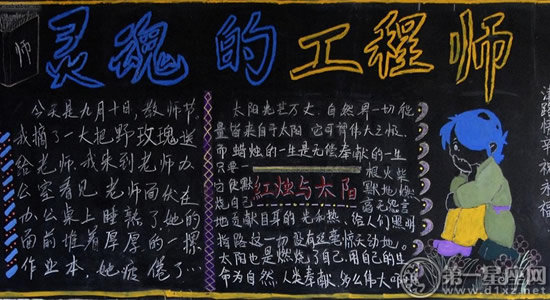 师
灵魂的工程师
今天是九月十日,教师节
我摘了一大把野玫瑰送
给老师.我来到老师办
公室看见,老师面伏在
办公桌上睡熟了,她的
面前堆着厚厚的一摞
作业本,她疲倦了…
太阳光芒万丈,自然界一切能
量皆来自于太阳,它可替伟大之极.
而蜡烛的一生是无偿奉献的一生
只要 一根火柴
它便默 默地燃
烧自己 毫无怨言
红烛与太阳
地贡献自身的光和热、给人们照明
指路这一切没有这毫惊天动地.
太阳也是燃烧了自己,用自己的生
命为自然、人类奉献,多么伟大
第一星座网
www.d1xz.net